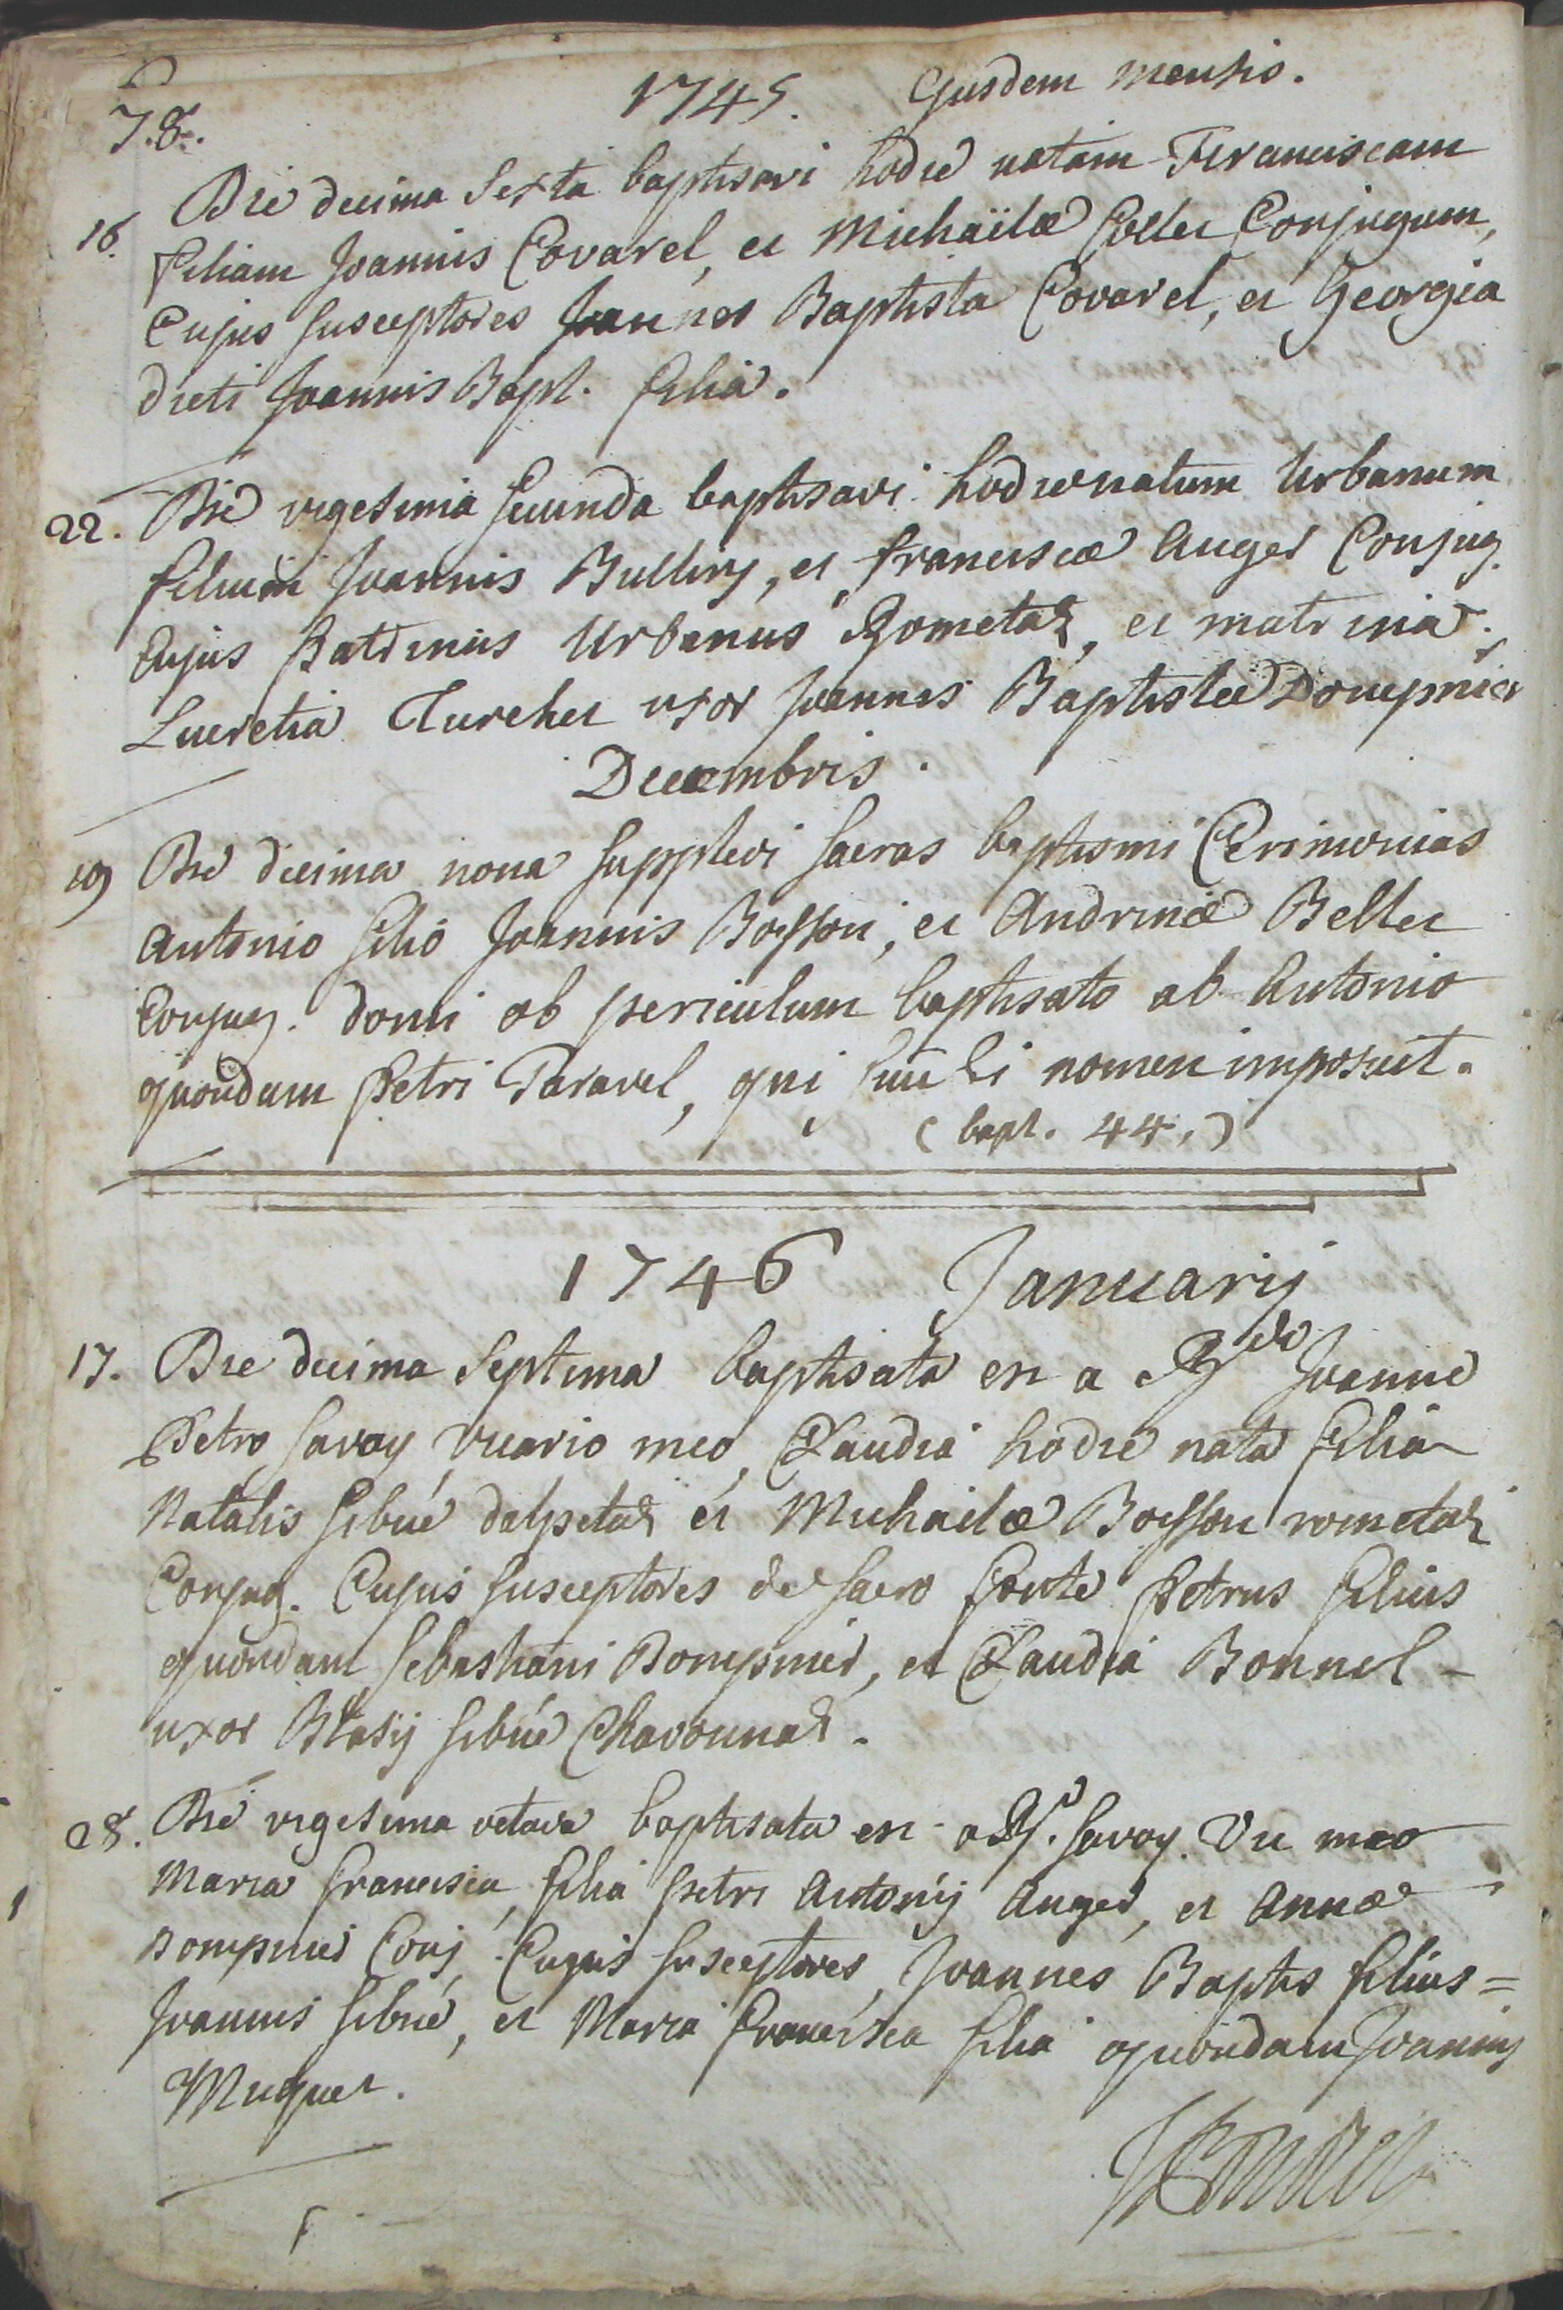 78.
1745. Ejusdem mensis.
16. Die decima Sexta baptisavi hodie natam Franciscam
filiam Joannis Covarel, et Michaïlæ Collet Conjugum,
Cujus susceptores Joannes Baptista Covarel, et Georgia
dicti Joannis Bapt. filia.
22. Die vigesima secunda baptisavi hodie natum Urbanum
filium Joannis Bulliny, et franciscæ Auger Conjug.
Cujus Patrinus Urbanus Rometaz, et matrina
Lucretia Turchet uxor Joannis Baptistæ Dompnier
Decembris.
19 Die decima nona supplevi sacras baptismi Cerimonias
Antonio filio Joannis Boisson, et Andrinæ Bellet
Conjug. domi ob periculum baptisato ab Antonio
quondam Petri Taravel, qui suũ ei nomen imposuit.
( bapt. 44. )
1746 Januarij
17. Die decima Septima baptisata est a Rdo Joanne
Petro Savoy vicario meo, Claudia hodie nata filia
Natalis Sibué dalpetaz et Michailæ Boisson rometaz
Conjug. Cujus susceptores de sacro fonte Petrus filius
quondam Sebastiani Dompnier, et Claudia Bonnel
uxor Blasij Sibué Chavonnaz.
28. Die vigesima octava baptisata est a Rd. Savoy. Vic meo
Maria francisca, filia Petri Antonij Auger, et Annæ
Dompnier Conj. Cujus susceptores, Joannes Baptis filius =
Joannis Sibué, et Maria francisca filia quondam Joannis
Muguet.